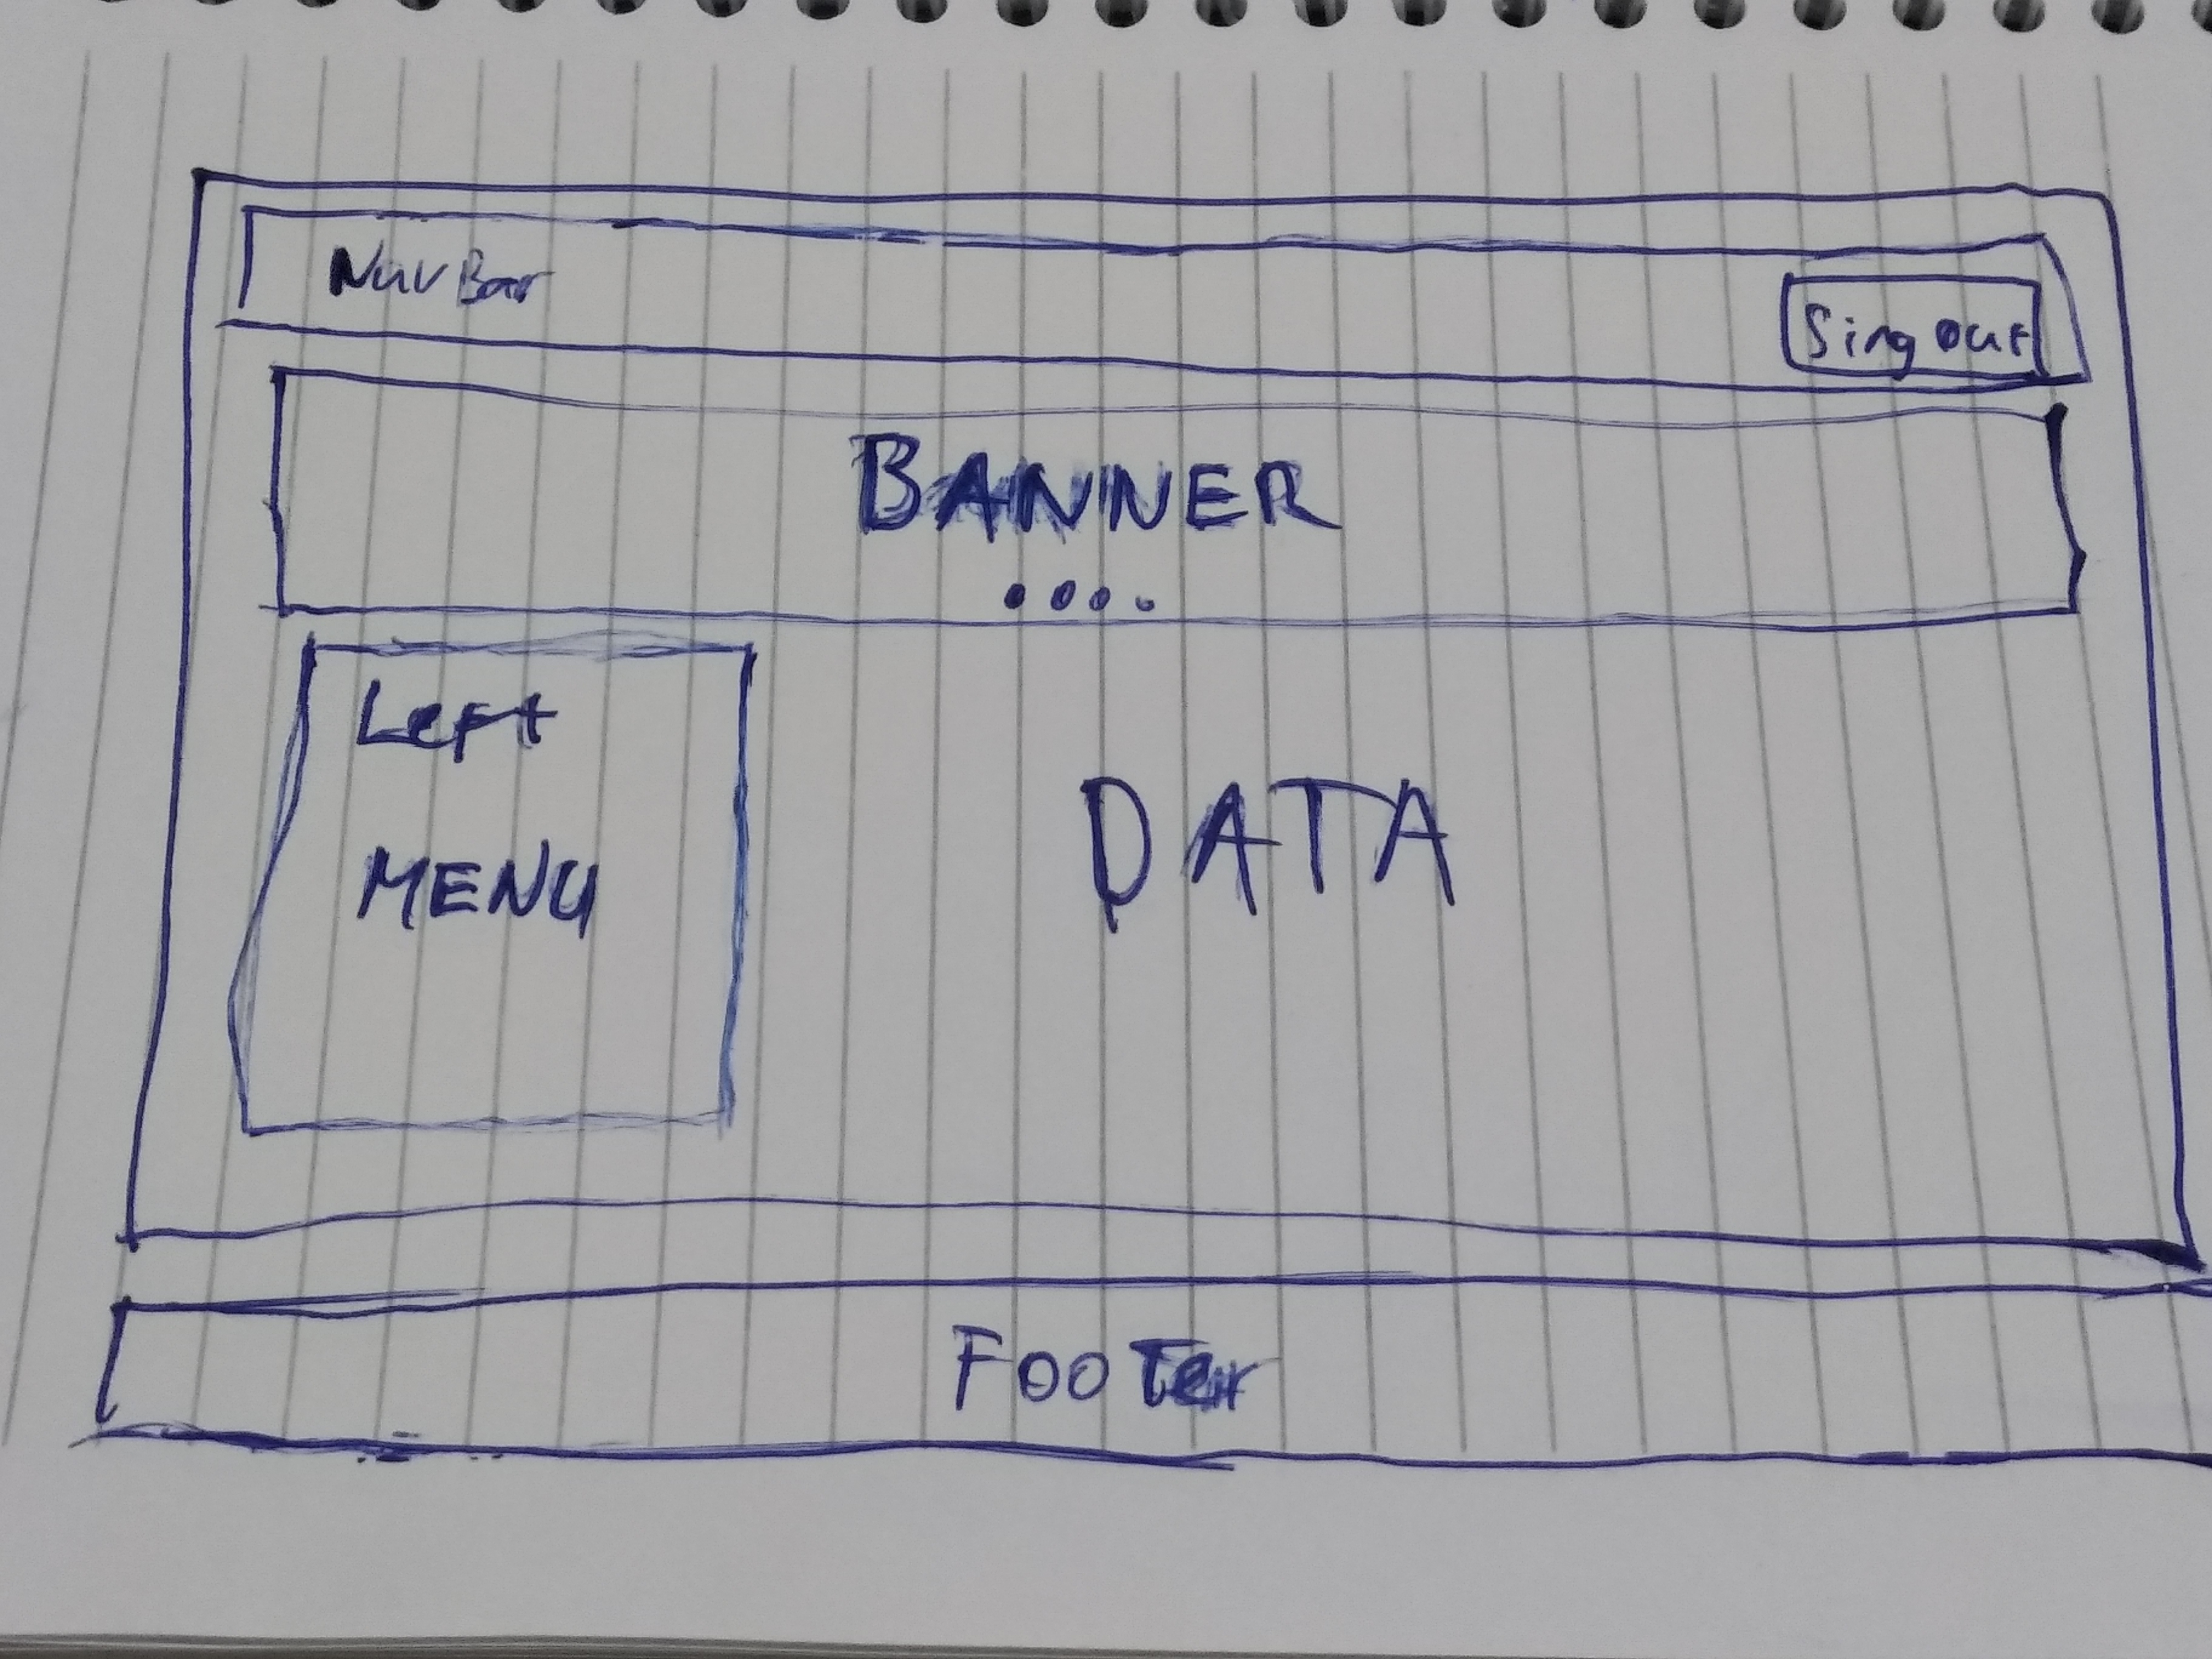 Nav Bar
Sing out
BANNER
Left
MENU
DATA
Footer